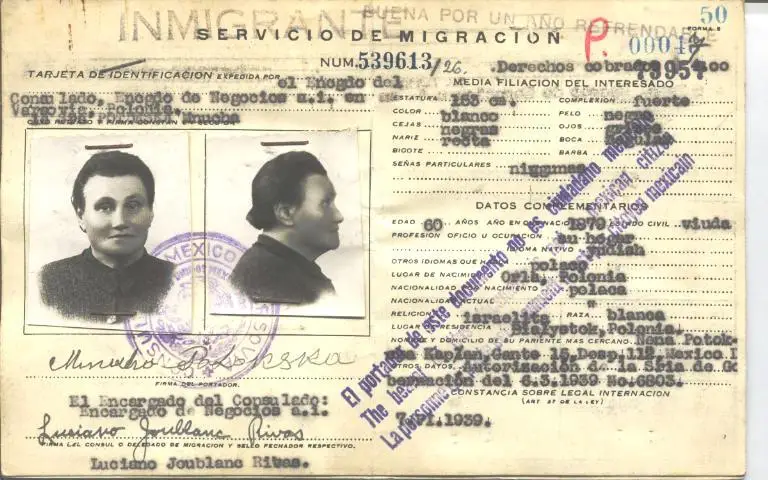 INMIGRANTE
BUENA POR UN AÑO REFRENDABLE
50
SERVICIO DE MIGRACION
FORMA 5
P.
NUM. 539613/26.
Derechos cobrados
73954
TARJETA DE IDENTIFICACION EXPEDIDA POR el Encgdo del
Consulado, Encgdo de Negocios a.i. en
Varsovia, Polonia.
MEDIA FILIACION DEL INTERESADO
ESTATURA 153 cm. COMPLEXION fuerte
COLOR blanco PELO negro
CEJAS negras OJOS
NARIZ recta BOCA
BIGOTE BARBA
SEÑAS PARTICULARES ningunas
DATOS COMPLEMENTARIOS
EDAD 60 AÑOS AÑO EN QUE NACIO 1879 ESTADO CIVIL viuda
PROFESION OFICIO U OCUPACION su hogar
IDIOMA NATIVO yidish
OTROS IDIOMAS QUE HABLA polaco
LUGAR DE NACIMIENTO Orla, Polonia
NACIONALIDAD DE NACIMIENTO polaca
NACIONALIDAD ACTUAL "
RELIGION israelita RAZA blanca
LUGAR DE RESIDENCIA Bialystok, Polonia.
NOMBRE Y DOMICILIO DE SU PARIENTE MAS CERCANO Nena Potok-
Kaplan, Gante 15, Desp. 112, Mexico D
OTROS DATOS Autorización de la Sria de Go
bernación del 6.3.1939 No. 6803.
CONSTANCIA SOBRE LEGAL INTERNACION
(ART 57 DE LA LEY)
7.VI.1939.
El portador de este documento no es ciudadano mexicano
The bearer
La personne
MEXICO
FIRMA DEL PORTADOR.
El Encargado del Consulado:
Encargado de Negocios a.i.
Luciano Joublanc Rivas
FIRMA DEL CONSUL O DELEGADO DE MIGRACION Y SELLO FECHADOR RESPECTIVO.
Luciano Joublanc Rivas.